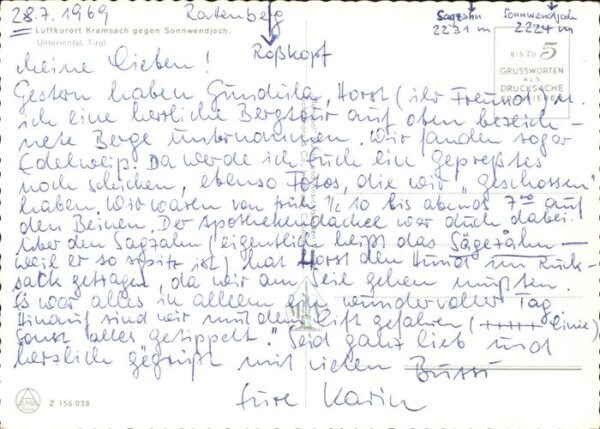 28.7.1969 Rattenberg
Sagzahn 2231 m
Sonnwendjoch 2224 m
Luftkurort Kramsach gegen Sonnwendjoch,
Unterinntal, Tirol
Roßkopf
BIS ZU 5
GRUSSWORTEN
ALS
DRUCKSACHE
FREIMACHEN
Meine Lieben!
Gestern haben Gundula, Horst (ihr Freund) u.
ich eine herrliche Bergtour auf oben bezeich-
nete Berge unternommen. Wir fanden sogar
Edelweiß. Da werde ich Euch ein gepreßtes
noch schicken, ebenso Fotos, die wir "geschossen"
haben. Wir waren von früh ½ 10 bis abends 7°° auf
den Beinen. Der Apothekendackel war auch dabei.
Über den Sagzahn (eigentlich heißt das Sägezähn
weil er so spitz ist) hat Horst den Hund im Ruck-
sack getragen, da wir am Seil gehen mußten.
Es war alles in allem ein wundervoller Tag
Hinauf sind wir mit dem Lift gefahren (+++++ Linie)
Sonst alles "getippelt". Seid ganz lieb und
herzlich gegrüßt mit vielen Bussi
Eure Karin
Z 156 038